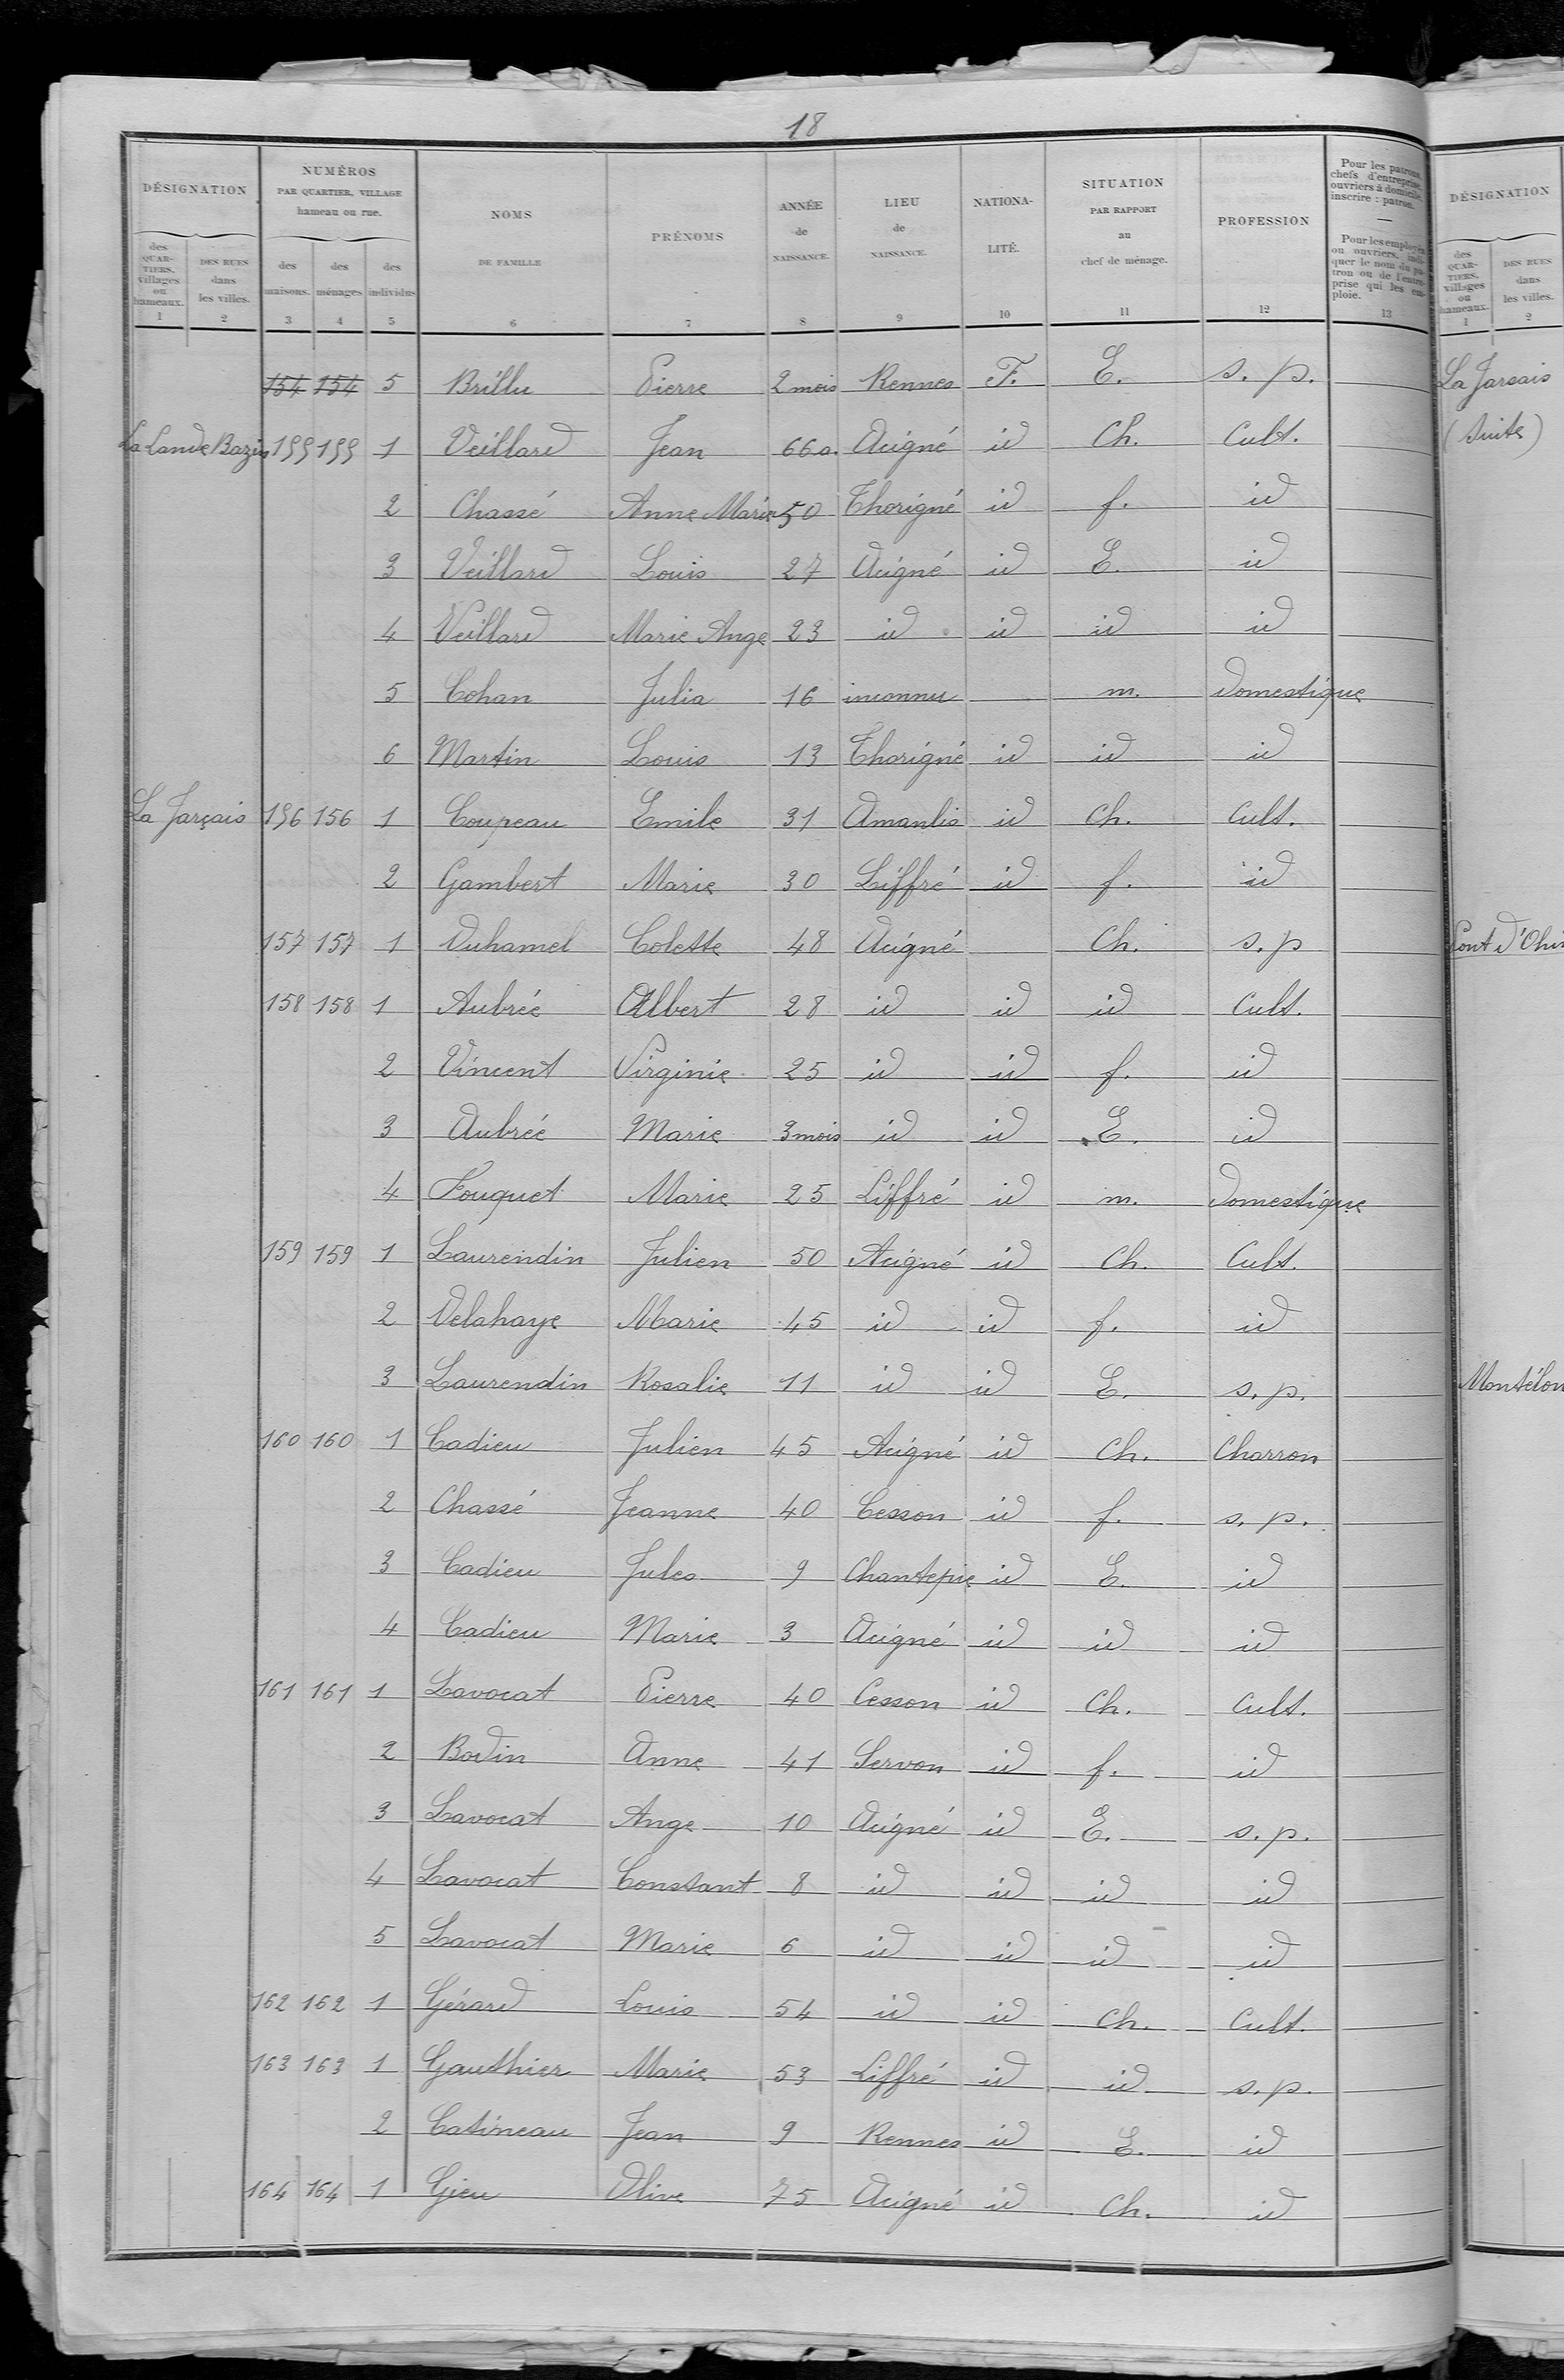 18
DÉSIGNATION
NUMÉROS
PAR QUARTIER, VILLAGE
hameau ou rue.
NOMS
DE FAMILLE
PRÉNOMS
ANNÉE
de
NAISSANCE.
LIEU
de
NAISSANCE.
NATIONA-
LITÉ.
SITUATION
PAR RAPPORT
au
chef de ménage.
PROFESSION
Pour les patrons,
chefs d'entreprise,
ouvriers à domicile,
inscrire : patron.
Pour les employés
ou ouvriers, indi-
quer le nom du pa-
tron ou de l'entre-
prise qui les em-
ploie.
des
QUAR-
TIERS,
villages
ou
hameaux.
DES RUES
dans
les villes.
des
maisons.
des
ménages
des
individus
1 2 3 4 5 6 7 8 9 10 11 12 13
154 154 5 Brillu Pierre 2 mois Rennes F. E. s. p.
La Lande Bazin 155 155 1 Veillard Jean 66 a. Acigné id Ch. Cult.
2 Chassé Anne Marie 50 Thorigné id f. id
3 Veillard Louis 27 Acigné id E. id
4 Veillard Marie Ange 23 id id id id
5 Cohan Julia 16 inconnu m. Domestique
6 Martin Louis 13 Thorigné id id id
La Jarçais 156 156 1 Coupeau Emile 31 Amanlis id Ch. Cult.
2 Gambert Marie 30 Liffré id f. id
157 157 1 Duhamel Colette 48 Acigné Ch. s. p
158 158 1 Aubrée Albert 28 id id id Cult.
2 Vincent Virginie 25 id id f. id
3 Aubrée Marie 3 mois id id E. id
4 Fouquet Marie 25 Liffré id m. Domestique
159 159 1 Laurendin Julien 50 Acigné id Ch. Cult.
2 Delahaye Marie 45 id id f. id
3 Laurendin Rosalie 11 id id E. s. p.
160 160 1 Cadieu Julien 45 Acigné id Ch. Charron
2 Chassé Jeanne 40 Cesson id f. s. p.
3 Cadieu Jules 9 Chantepie id E. id
4 Cadieu Marie 3 Acigné id id id
161 161 1 Lavocat Pierre 40 Cesson id Ch. Cult.
2 Bodin Anne 41 Servon id f. id
3 Lavocat Ange 10 Acigné id E. s. p.
4 Lavocat Constant 8 id id id id
5 Lavocat Marie 6 id id id id
162 162 1 Gérard Louis 54 id id Ch. Cult.
163 163 1 Gauthier Marie 53 Liffré id id s. p.
2 Catineau Jean 9 Rennes id E. id
164 164 1 Gieu Olive 75 Acigné id Ch. id
DÉSIGNATION
des
QUAR-
TIERS,
villages
ou
hameaux.
DES RUES
dans
les villes.
1 2
La Jarsais
(Suite)
Pont d'